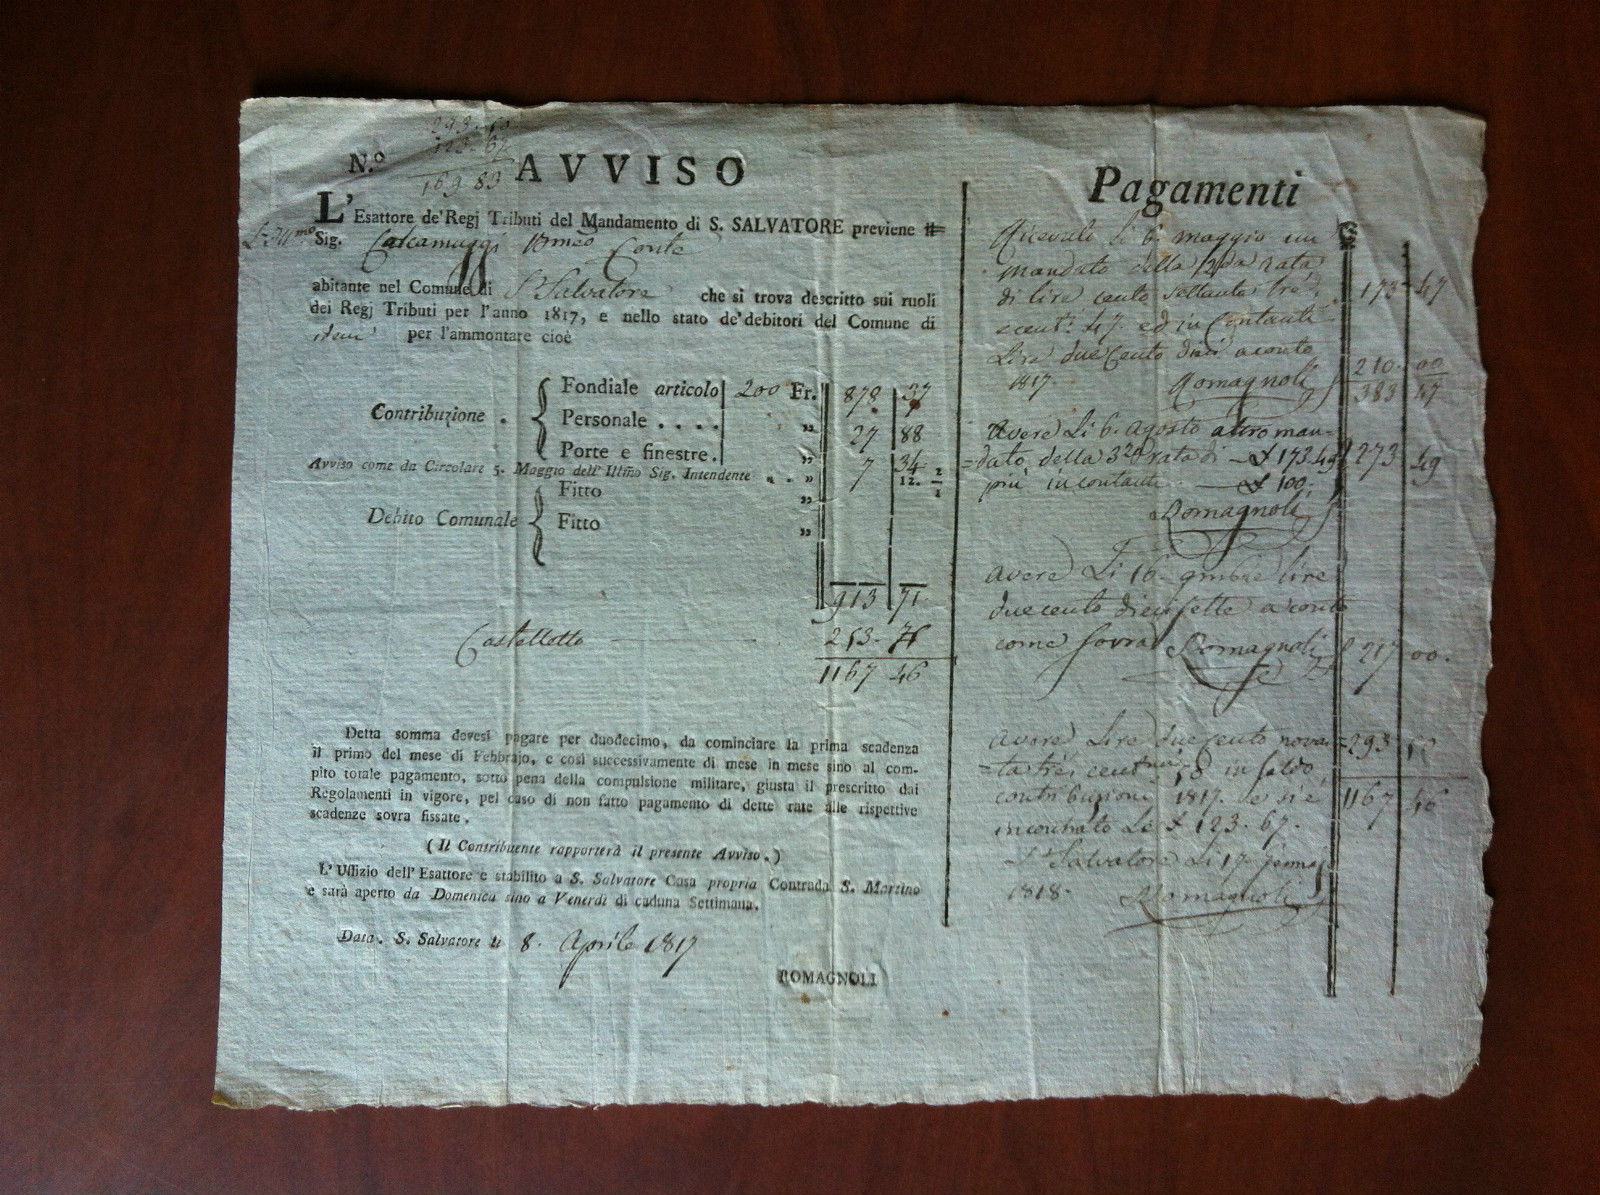 293. 50
123. 67
169 83
N.º AVVISO
L'Esattore de' Regj Tributi del Mandamento di S. SALVATORE previene il
Ill.mo Sig. Calcamuggi Conte
abitante nel Comune di S. Salvatore che si trova descritto sui ruoli
dei Regj Tributi per l'anno 1817, e nello stato de' debitori del Comune di
per l'ammontare cioè
Contribuzione .
Fondiale articolo 200 Fr. 878 37
Personale . . . . „ 27 88
Porte e finestre. „ 7 34
Avviso come da Circolare 5. Maggio dell'Illmo Sig. Intendente . . „ 12.
Debito Comunale
Fitto „
Fitto „
913 71
Castelletto 253. 75
1167 46
Detta somma devesi pagare per duodecimo, da cominciare la prima scadenza
il primo del mese di Febbrajo, e così successivamente di mese in mese sino al com-
pito totale pagamento, sotto pena della compulsione militare, giusta il prescritto dai
Regolamenti in vigore, pel caso di non fatto pagamento di dette rate alle rispettive
scadenze sovra fissate.
(Il Contribuente rapporterà il presente Avviso.)
L'Uffizio dell'Esattore è stabilito a S. Salvatore Casa propria Contrada S. Martino
e sarà aperto da Domenica sino a Venerdì di caduna Settimana.
Data. S. Salvatore li 8. Aprile 1817
ROMAGNOLI
Pagamenti
Ricevuto Li 6. maggio un
mandato della 2da rata
di lire cento settanta tre 173 47
e cent. 47 ed in Contanti
Lire due Cento dieci a conto 210. 00
1817. Romagnoli 383 47
Avere Li 6. Agosto altro man-
dato della 3 rata di £ 173.49 273 49
più in contanti £ 100.
Romagnoli
Avere Li 16. 9mbre lire
duecento diecisette a conto
come sovra Romagnoli 217 00.
Avere Lire due Cento novan= 293. 50
=ta tre, cent. in saldo
contribuzioni 1817. e si è 1167 46
incontrato Li £ 123. 67.
S. Salvatore Li 17.
1818. Romagnoli